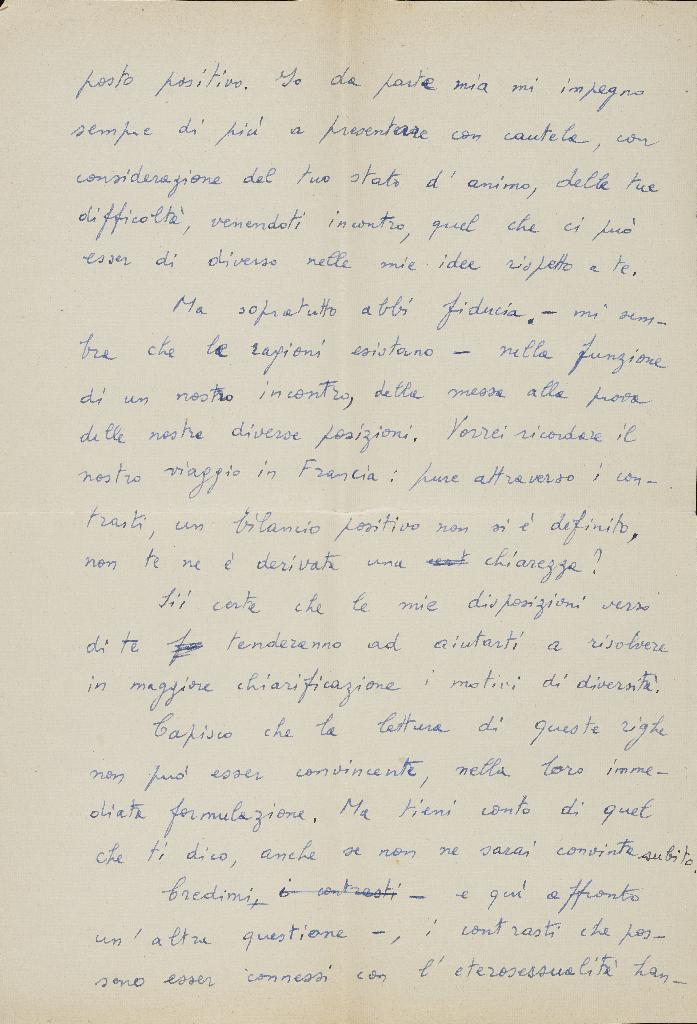 posto positivo. Io da parte mia mi impegno
sempre di più a presentare con cautela, con
considerazione del tuo stato d'animo, delle tue
difficoltà, venendoti incontro, quel che ci può
esser di diverso nelle mie idee rispetto a te.
Ma sopratutto abbi fiducia. – mi sem-
bra che le ragioni esistano – nella funzione
di un nostro incontro, della messa alla prova
delle nostre diverse posizioni. Vorrei ricordare il
nostro viaggio in Francia: pure attraverso i con-
trasti, un bilancio positivo non si è definito,
non te ne è derivata una chiarezza?
Sii certa che le mie disposizioni verso
di te tenderanno ad aiutarti a risolvere
in maggiore chiarificazione i motivi di diversità.
Capisco che la lettura di queste righe
non può esser convincente, nella loro imme-
diata formulazione. Ma tieni conto di quel
che ti dico, anche se non ne sarai convinta subito.
Credimi, i contrasti – e quì affronto
un'altra questione –, i contrasti che pos-
sono esser connessi con l'eterosessualità han-